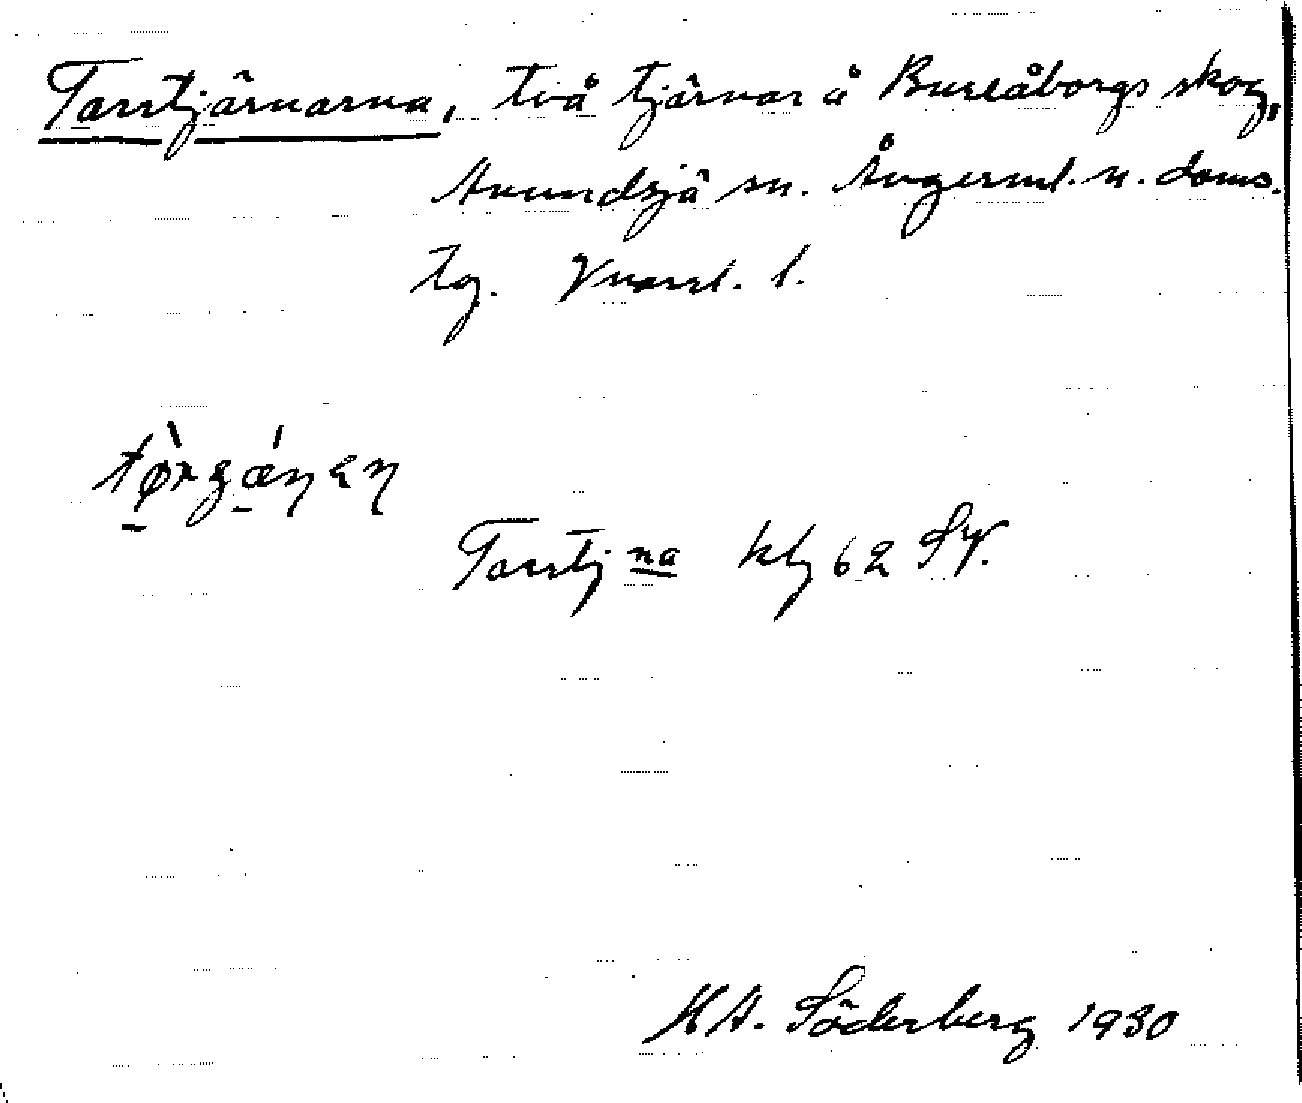 Tarrtjärnarna, två tjärnar å Bureåborgs skog,
Anundsjö sn. Ångerml. n. doms.
tg. Vnorrl. l.
Tarrtj na blg 62 SV.
H A. Söderberg 1930